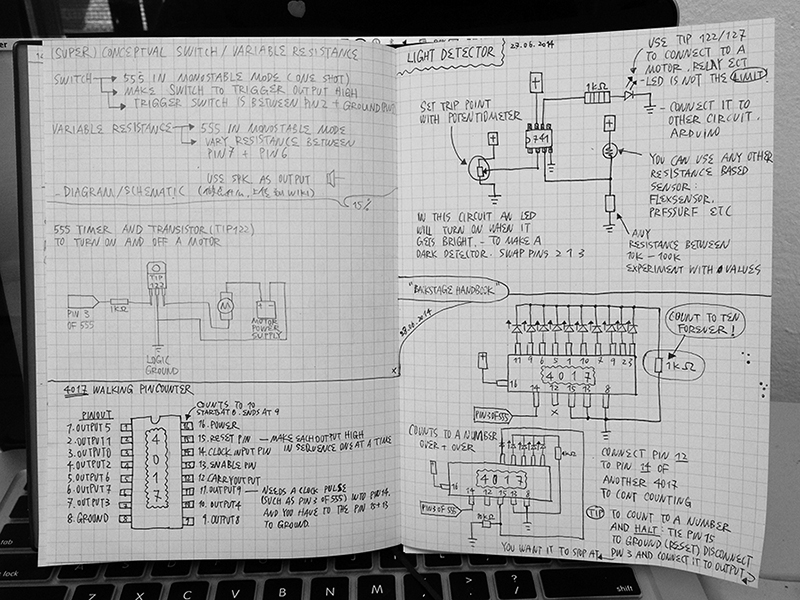 (SUPER) CONCEPTUAL SWITCH / VARIABLE RESISTANCE
SWITCH → 555 IN MONOSTABLE MODE (ONE SHOT)
→ MAKE SWITCH TO TRIGGER OUTPUT HIGH
→ TRIGGER SWITCH IS BETWEEN PIN 2 + GROUND (PIN1)
VARIABLE RESISTANCE → 555 IN MONOSTABLE MODE
→ VARY RESISTANCE BETWEEN
PIN 7 + PIN 6
USE SPK AS OUTPUT
- DIAGRAM/SCHEMATIC
15%
555 TIMER AND TRANSISTOR (TIP122)
TO TURN ON AND OFF A MOTOR
TIP
122
PIN 3
OF 555
1KΩ
M
+ -
MOTOR
POWER
SUPPLY
LOGIC
GROUND
x
4017 WALKING PIN COUNTER
COUNTS TO 10
START AT 0. ENDS AT 9
PINOUT
1. OUTPUT 5
2. OUTPUT 1
3. OUTPUT 0
4. OUTPUT 2
5. OUTPUT 6
6. OUTPUT 7
7. OUTPUT 3
8. GROUND
4017
16. POWER
15. RESET PIN — MAKE EACH OUTPUT HIGH
14. CLOCK INPUT PIN IN SEQUENCE ONE AT A TIME
13. ENABLE PIN
12. CARRY OUTPUT
11. OUTPUT 9 — NEEDS A CLOCK PULSE
10. OUTPUT 4 (SUCH AS PIN 3 OF 555) INTO PIN 14.
AND YOU HAVE TO THE PIN 15+13
9. OUTPUT 8 TO GROUND.
LIGHT DETECTOR
29.06.2014
USE TIP 122/127
TO CONNECT TO A
MOTOR. RELAY ECT
- LED IS NOT THE LIMIT!
- CONNECT IT TO
OTHER CIRCUIT.
ARDUINO
1KΩ
+
SET TRIP POINT
WITH POTENTIOMETER
+
741
+
YOU CAN USE ANY OTHER
RESISTANCE BASED
SENSOR:
FLEXSENSOR,
PRESSURE ETC
IN THIS CIRCUIT AN LED
WILL TURN ON WHEN IT
GETS BRIGHT. - TO MAKE A
DARK DETECTOR. SWAP PINS 2 & 3
ANY
RESISTANCE BETWEEN
10K - 100K
EXPERIMENT WITH VALUES
"BACKSTAGE HANDBOOK"
29.06.2014
COUNT TO TEN
FOREVER!
1KΩ
+
11 9 6 5 1 10 7 4 2 3
4017
16
14 12 15 13 8
PIN 3 OF 555
x
COUNTS TO A NUMBER
OVER + OVER
+
16
4017
14 12 15 13 8
PIN 3 OF 555
10KΩ
CONNECT PIN 12
TO PIN 14 OF
ANOTHER 4017
TO CONT COUNTING
TIP TO COUNT TO A NUMBER
AND HALT: TIE PIN 15
TO GROUND (RESET) DISCONNECT
PIN 13 AND CONNECT IT TO OUTPUT
YOU WANT IT TO STOP AT
tab
lock
Z X C V B N M < > ? /
shift